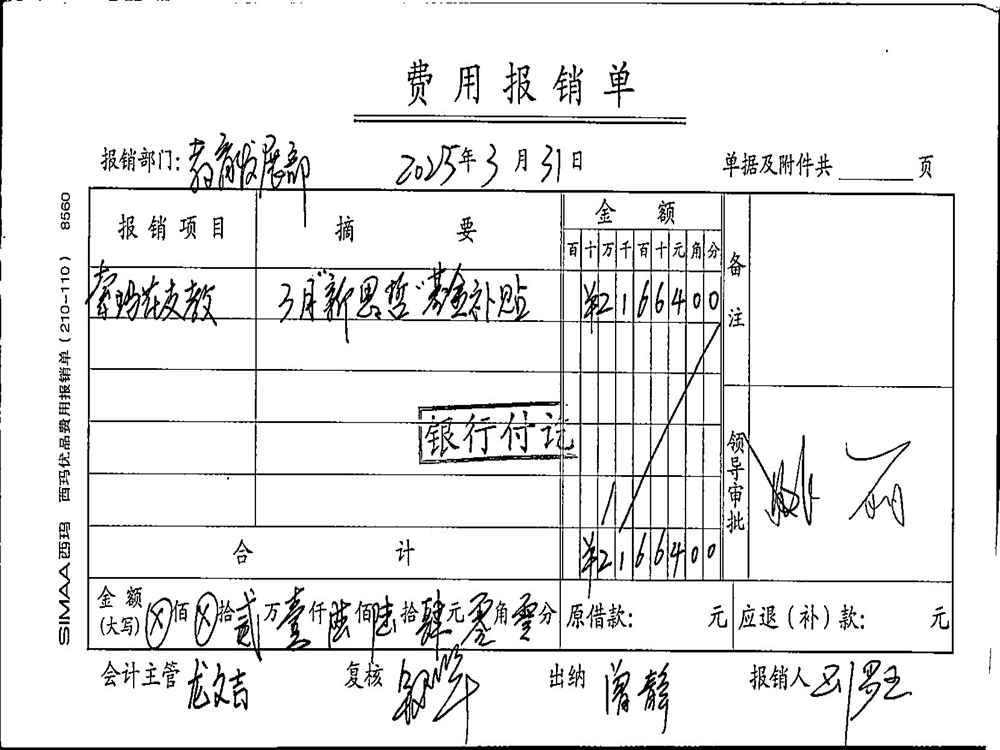 费用报销单
报销部门：教育发展部 2025年3月31日 单据及附件共 页
报销项目 摘要 金额 备注
百十万千百十元角分
3月"新思哲"基金补贴 ¥2166400
银行付讫
领导审批
合计 ¥2166400
金额(大写) ⊗佰⊗拾贰万壹仟陆佰陆拾肆元零角零分 原借款： 元 应退（补）款： 元
会计主管 龙文吉 复核 出纳 曾静 报销人
SIMAA西玛 西玛优品费用报销单（210-110） 8560